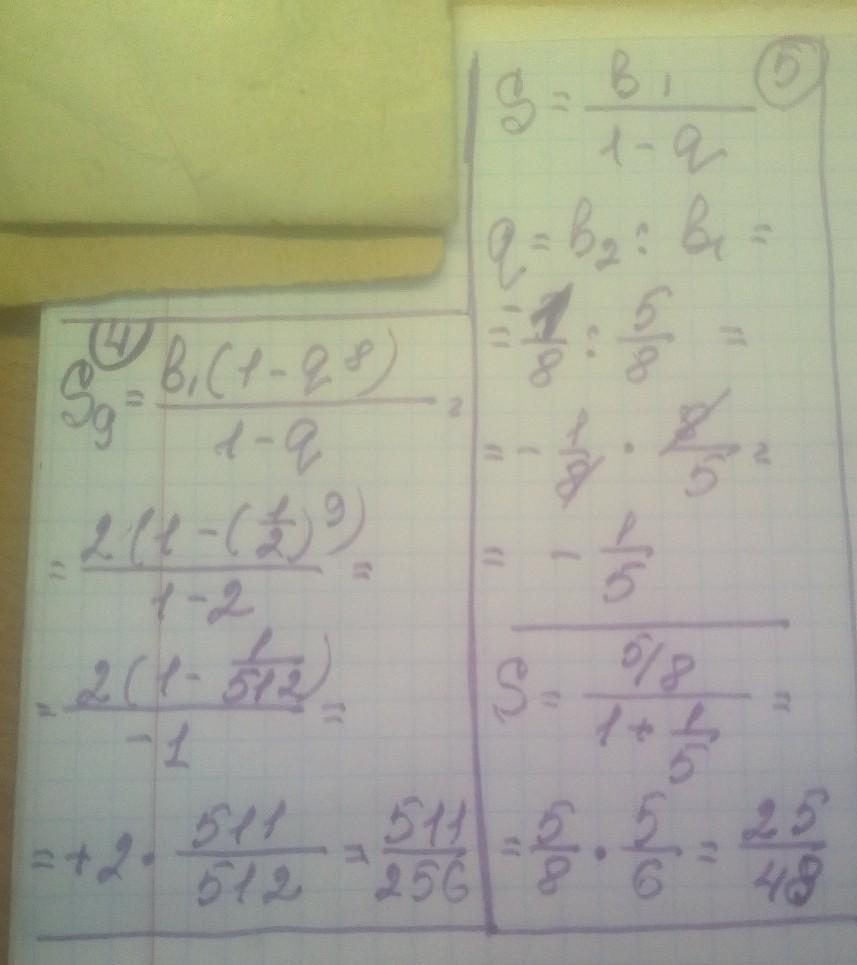 4
S₉ = b₁(1 - q⁸) / 1 - q =
= 2(1 - (1/2)⁹) / 1 - 2 =
= 2(1 - 1/512) / -1 =
= +2 · 511/512 = 511/256
5
S = b₁ / 1 - q
q = b₂ : b₁ =
= -1/8 : 5/8 =
= - 1/8 · 8/5 =
= - 1/5
S = 5/8 / 1 + 1/5 =
= 5/8 · 5/6 = 25/48